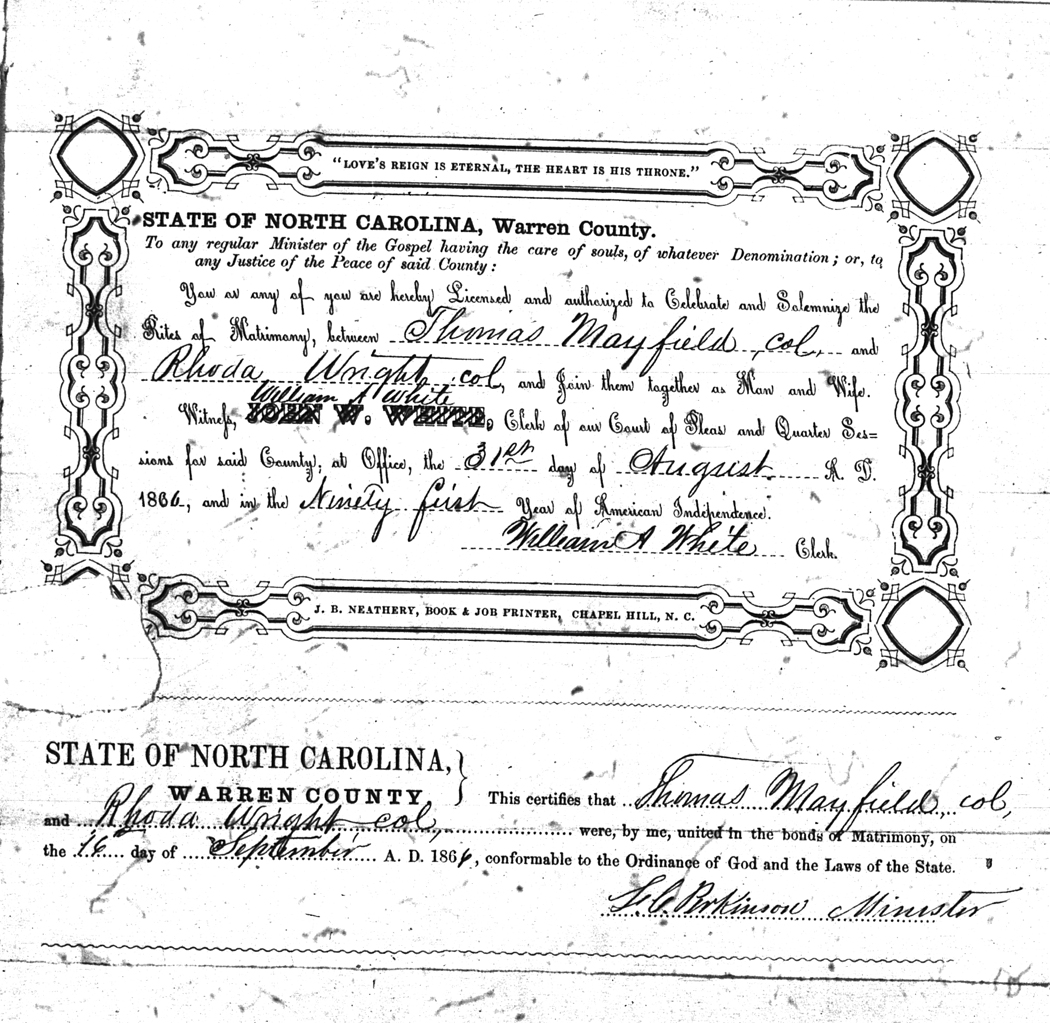 "LOVE'S REIGN IS ETERNAL, THE HEART IS HIS THRONE."
STATE OF NORTH CAROLINA, Warren County.
To any regular Minister of the Gospel having the care of souls, of whatever Denomination; or, to
any Justice of the Peace of said County:
You or any of you are hereby Licensed and authorized to Celebrate and Solemnize the
Rites of Matrimony, between Thomas Mayfield col, and
Rhoda Wright col, and Join them together as Man and Wife.
William A White
Witness, JOHN W. WHITE, Clerk of our Court of Pleas and Quarter Ses=
sions for said County, at Office, the 31st day of August A. D.
1866, and in the Ninety first Year of American Independence.
William A White Clerk.
J. B. NEATHERY, BOOK & JOB PRINTER, CHAPEL HILL, N. C.
STATE OF NORTH CAROLINA,
WARREN COUNTY
This certifies that Thomas Mayfield, col,
and Rhoda Wright col, were, by me, united in the bonds of Matrimony, on
the 16 day of September A. D. 1866, conformable to the Ordinance of God and the Laws of the State.
Perkinson Minister